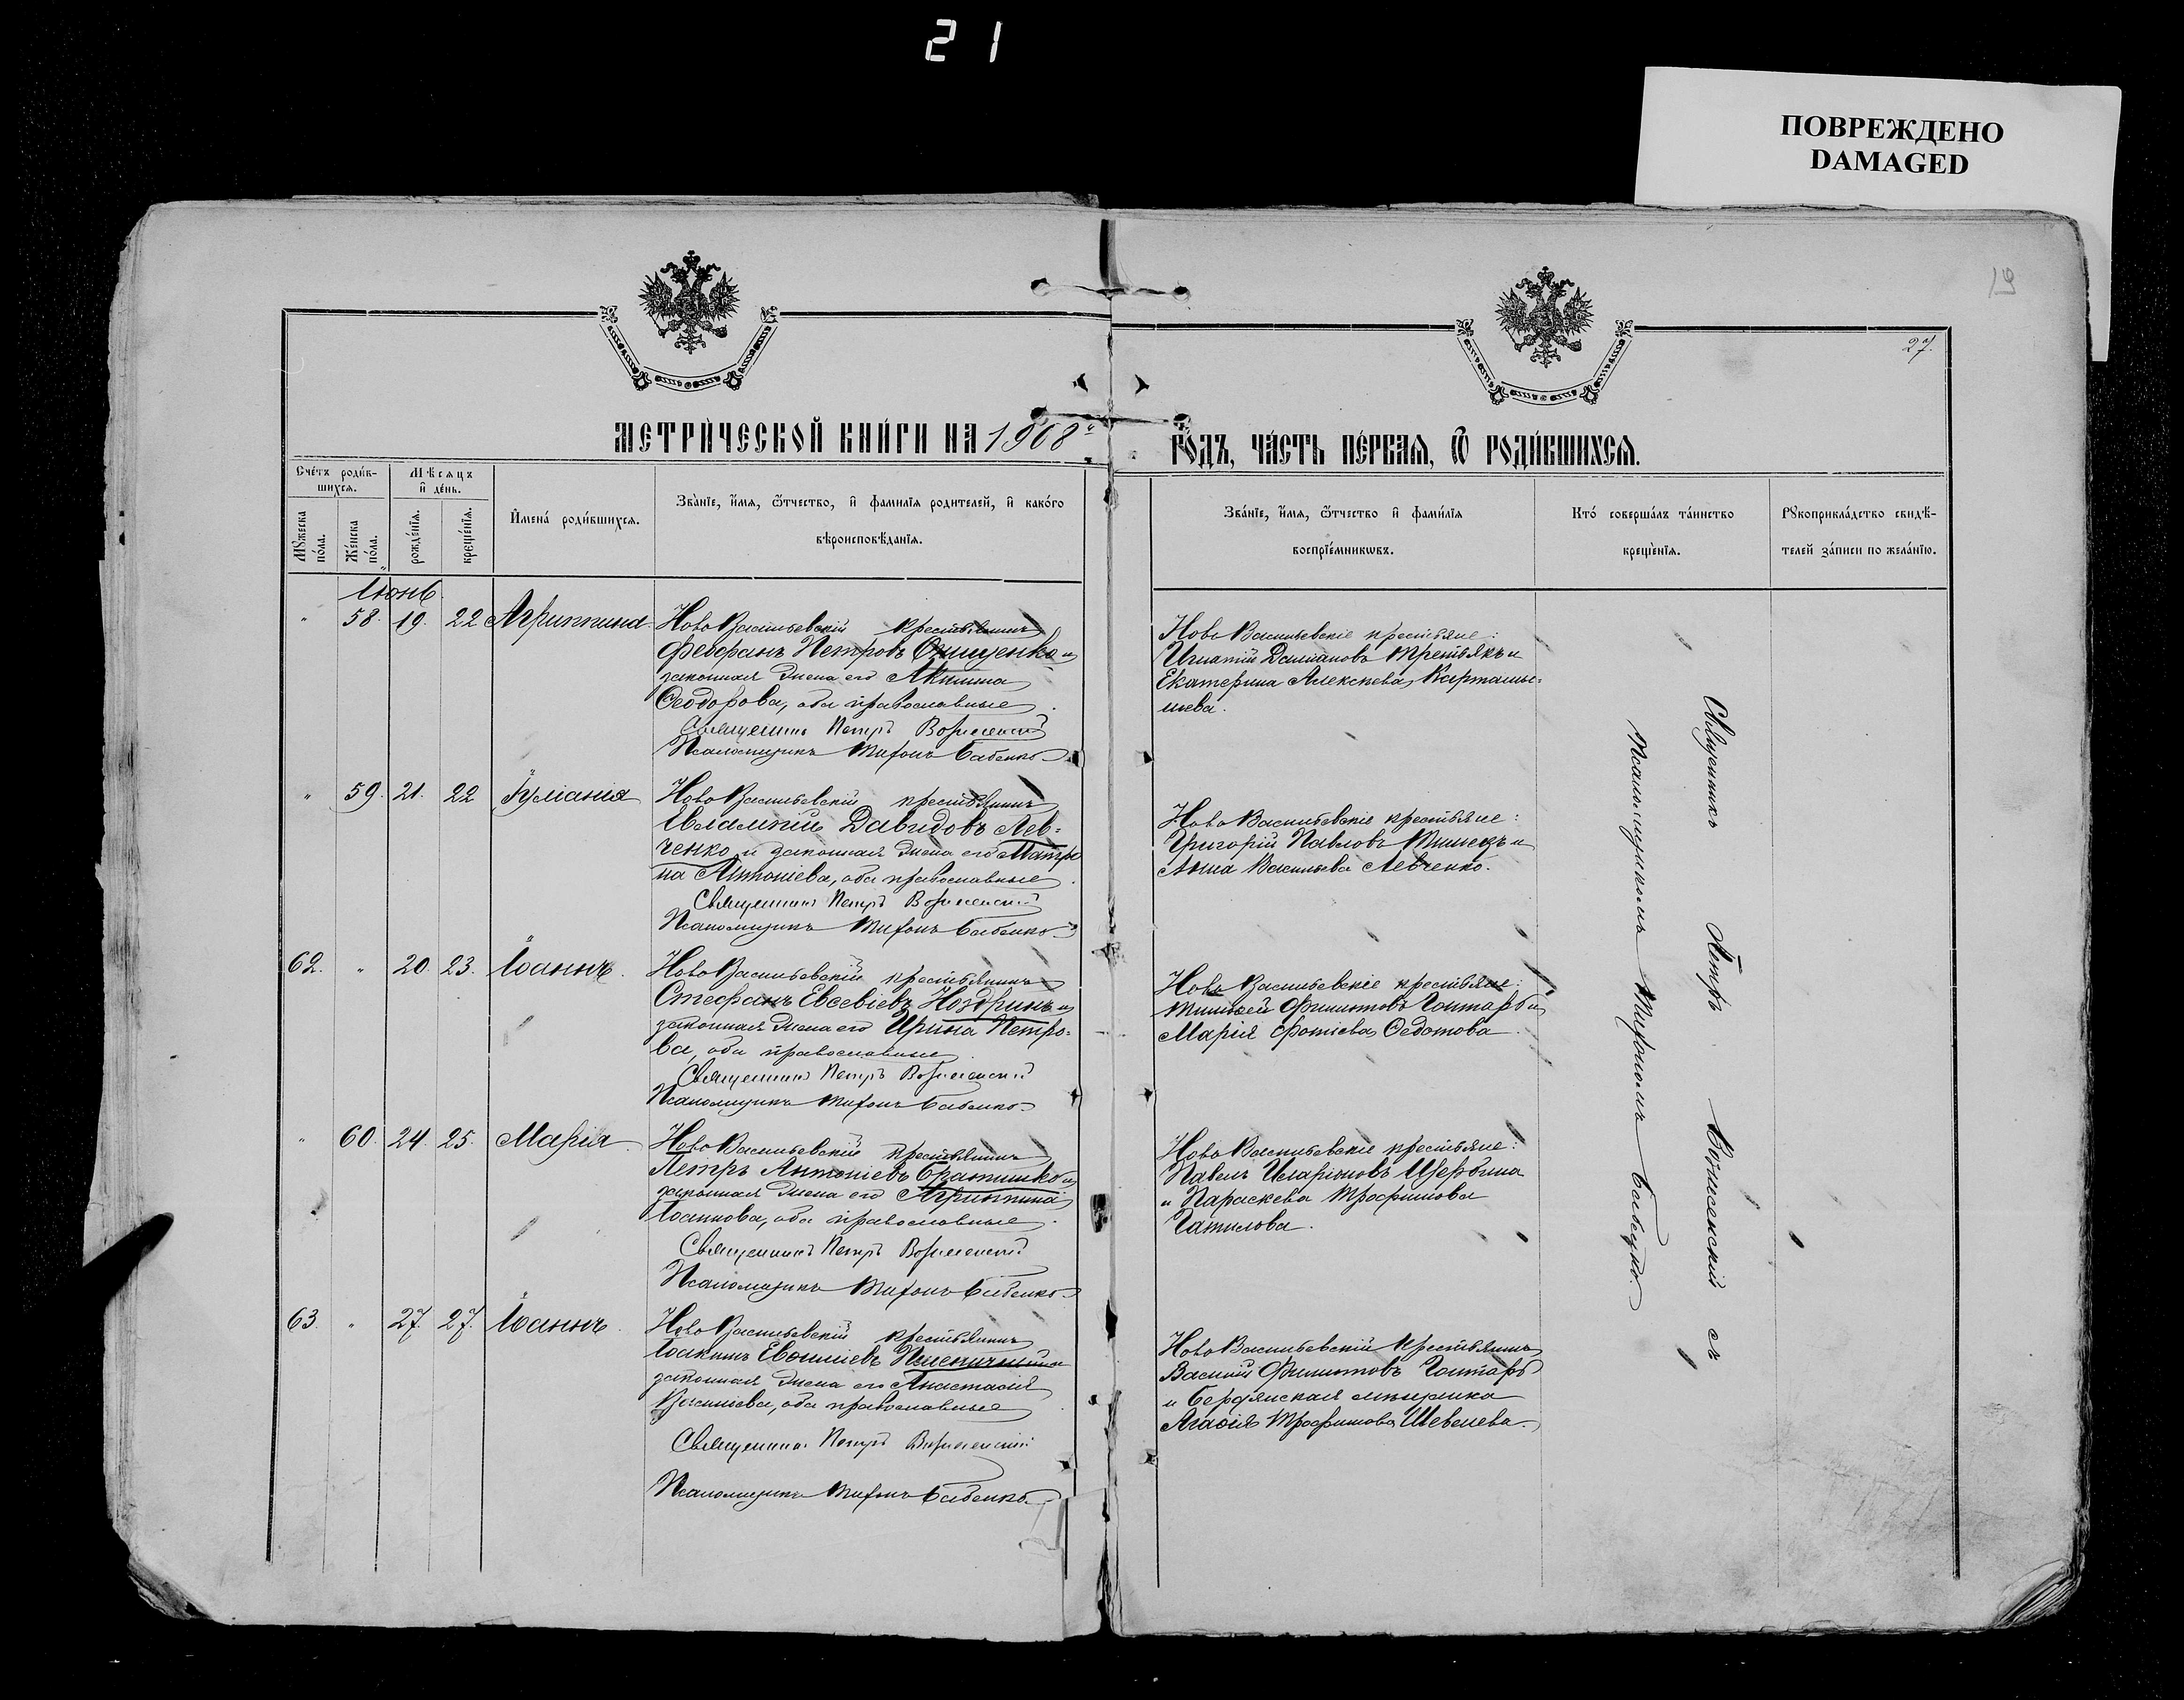 21
ПОВРЕЖДЕНО
DAMAGED
19
27.
МЕТРИ́ЧЕСКОЙ КНИ́ГИ НА 1908 й
ГО́ДЪ, ЧА́СТЬ ПЕ́РВАЯ, Ѿ РОДИ́ВШИХСЯ.
Сче́тъ роди́в-
шихся.
Мѣсяцъ
и де́нь.
Му́жеска по́ла.
Же́нска по́ла.
рожде́нїя.
креще́нїя.
Имена́ роди́вшихся.
Зва́нїе, и́мя, ѻ́тчество, и фамилїя родителей, и како́го
вѣроисповѣ́данїя.
Зва́нїе, и́мя, ѻ́тчество и фами́лїя
воспрїе́мниковъ.
Кто́ соверша́лъ та́инство
креще́нїя.
Рукоприкла́дство свидѣ́-
телей за́писи по жела́нїю.
Іюнь.
" 58. 19. 22 Агриппина.
НовоВасильевскій крестьянинъ
Феофанъ Петровъ Онищенко и
законная жена его Акилина
Ѳеодорова, оба православные.
Священникъ Петръ Вознесенскій
Псаломщикъ Тихонъ Бабенко
Ново Васильевскіе крестьяне:
Игнатій Даміановъ Третьякъ и
Екатерина Алексѣева Картамы-
шева.
" 59. 21. 22 Іуліанія
НовоВасильевскій крестьянинъ
Евлампій Давидовъ Лев-
ченко и законная жена его Матро
на Антоніева, оба православные.
Священникъ Петръ Вознесенскій
Псаломщикъ Тихонъ Бабенко
Ново Васильевскіе крестьяне:
Григорій Павловъ и
Анна Васильева Левченко.
62. " 20. 23. Іоаннъ.
НовоВасильевскій крестьянинъ
Стефанъ Евсевіевъ Ноздринъ и
законная жена его Ирина Петро-
ва, оба православные
Священникъ Петръ Вознесенскій
Псаломщикъ Тихонъ Бабенко
Ново Васильевскіе крестьяне:
Тимофей Филиповъ Гонтарь и
Марія Фотіева Ѳедотова.
" 60. 24. 25. Марія.
НовоВасильевскій крестьянинъ
Петръ Антоніевъ Братишко и
законная жена его Агриппина
Іоаннова, оба православные.
Священникъ Петръ Вознесенскій
Псаломщикъ Тихонъ Бабенко
Ново Васильевскіе крестьяне:
Павелъ Иларіоновъ Щербина
и Параскева Трофимова
Гатилова.
63. " 27. 27. Іоаннъ.
НовоВасильевскій крестьянинъ
Іоакимъ Пшеничный и
законная жена его Анастасія
оба православные.
Священникъ Петръ Вознесенскій
Псаломщикъ Тихонъ Бабенко
НовоВасильевскій крестьянинъ
Василій Филиповъ Гонтарь
и Бердянская мѣщанка
Агафія Трофимова Шевелева.
Священникъ Петръ Вознесенскій съ
Псаломщикомъ Тихономъ Бабенко.